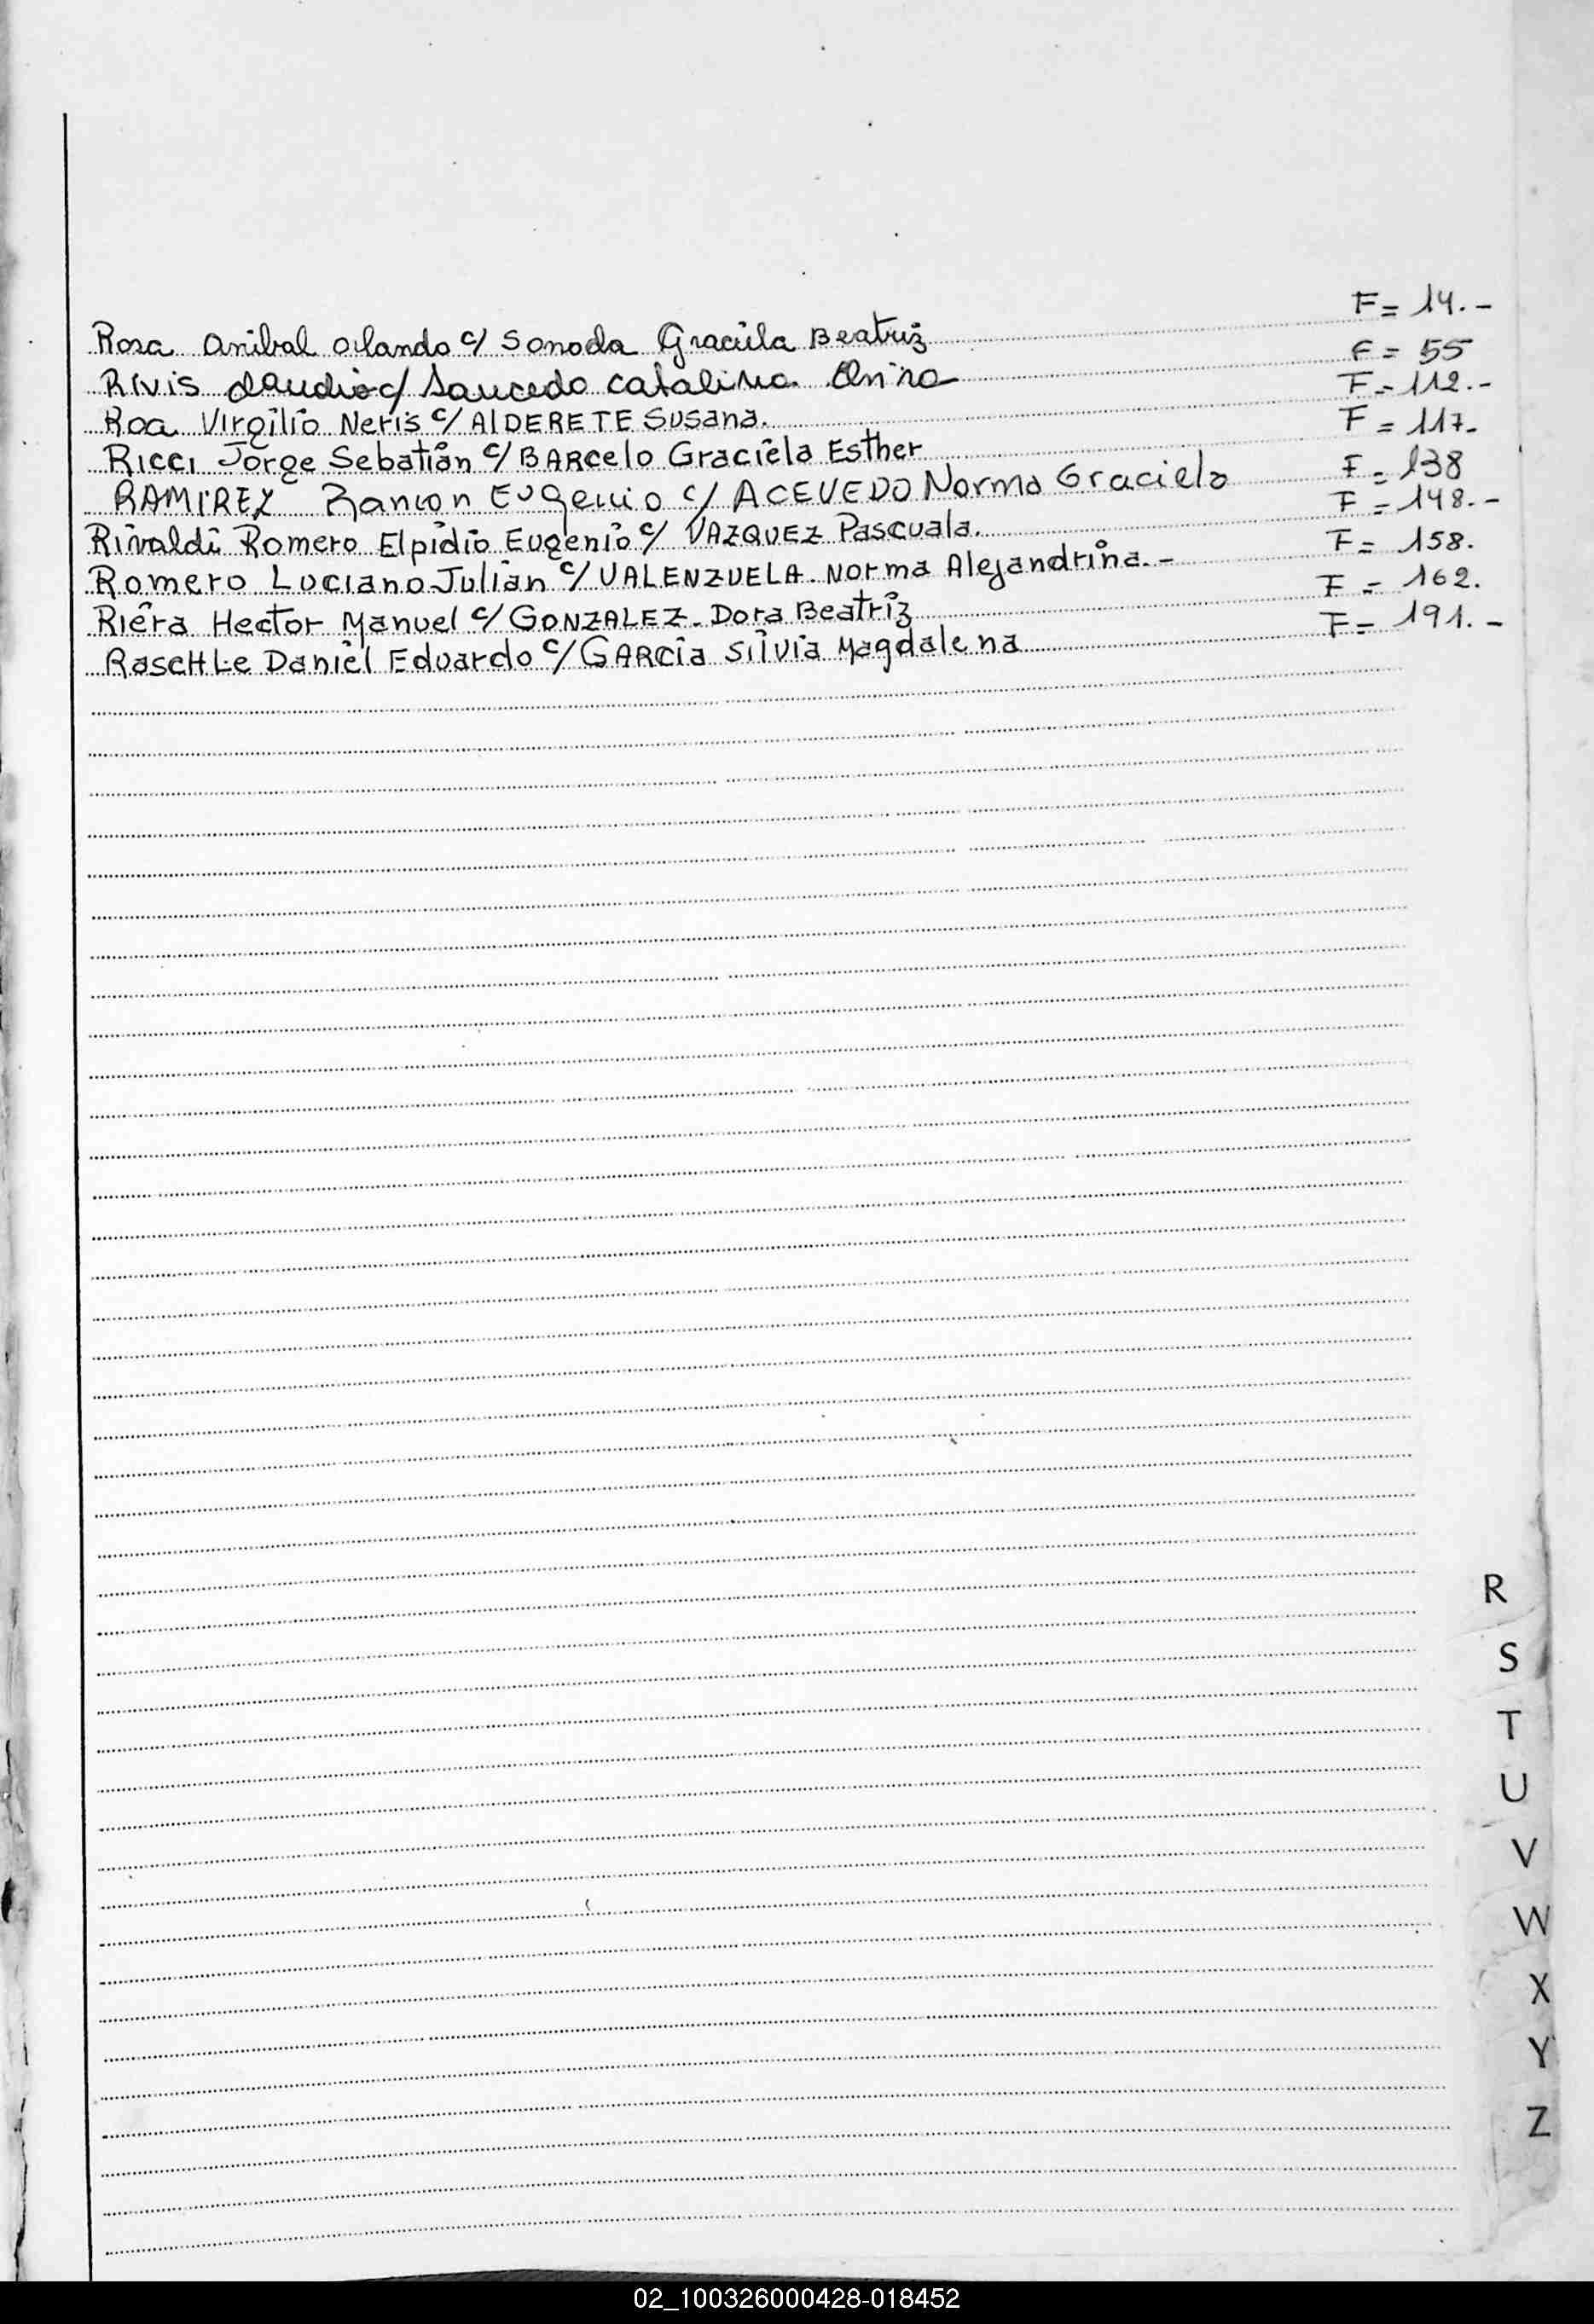 Rosa Anibal Orlando c/ Sonoda Graciela Beatriz F= 14.-
Rivis Claudio c/ Saucedo Catalina F= 55
Roa Virgilio Neris c/ AlDERETE Susana. F= 112.-
Ricci Jorge Sebatián c/ BARcelo Graciela Esther F= 117.-
RAMIREZ Ramon Eugenio c/ ACEVEDO Norma Graciela F= 138
Rivaldi Romero Elpidio Eugenio c/ VAZQUEZ Pascuala. F= 148.-
Romero Luciano Julian c/ VALENZUELA. Norma Alejandrina.- F= 158.
Riera Hector Manuel c/ GONZALEZ. Dora Beatriz F= 162.
RascHLe Daniel Eduardo c/ GARCia Silvia Magdalena F= 191.-
R
S
T
U
V
W
X
Y
Z
02_100326000428-018452